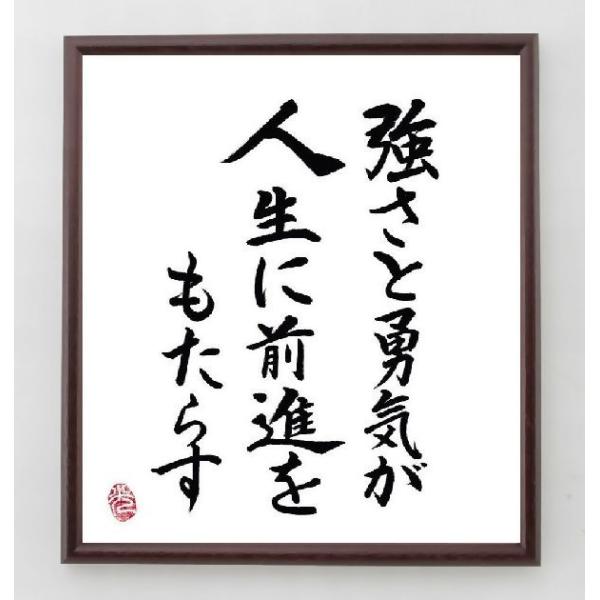 強さと勇気が
人生に前進を
もたらす